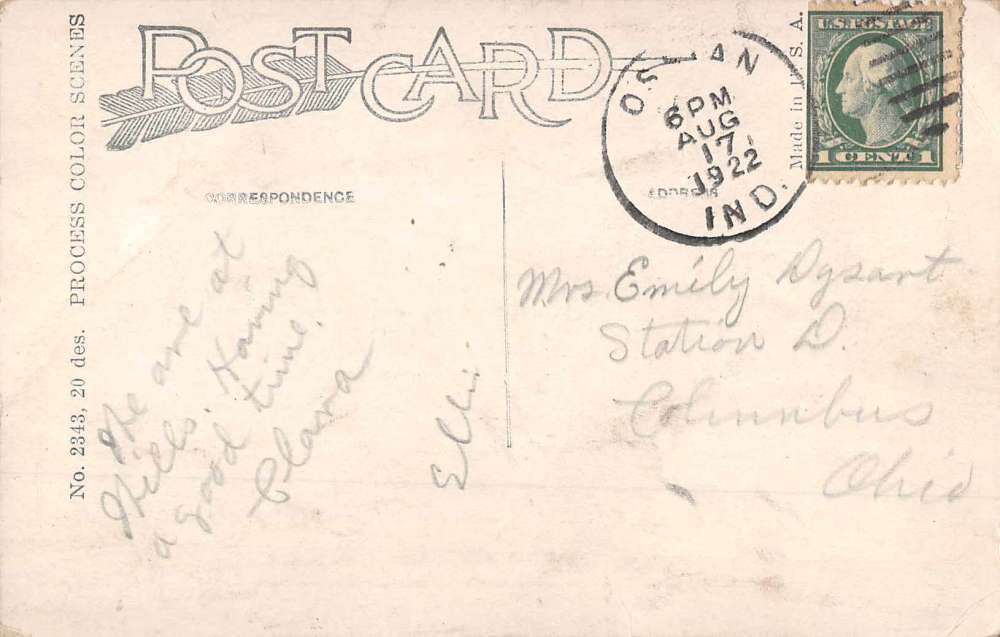 POST CARD
No. 2343, 20 des. PROCESS COLOR SCENES
CORRESPONDENCE
ADDRESS
Made in U. S. A.
U.S. POSTAGE
1 CENT 1
OSSIAN
6 PM
AUG
17
1922
IND.
We are at
Hills. Having
a good time.
Clara
Mrs. Emily Dysart
Station D.
Columbus
Ohio